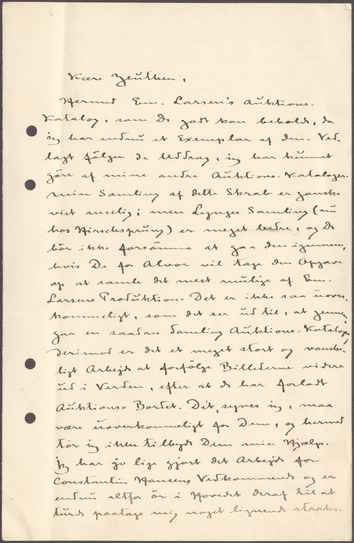 Kære Zeuthen,
Hermed Em. Larsen's Auktions-
Katalog, som De godt kan beholde, da
jeg har endnu et Exemplar af den. Ved-
lagt følger de Uddrag, jeg har kunnet
göre af mine andre Auktions-Kataloger.
Min Samling af dette Skrab er ganske
vist anselig; men Lynges Samling (nu
hos Hirschsprung) er meget bedre, og De
bör ikke forsömme at gaa den igennem,
hvis De for Alvor vil tage den Opgave
op at samle det mest mulige af Em.
Larsens Produktion. Det er ikke saa uover-
kommeligt, som det ser ud til, at gennem-
gaa en saadan Samling Auktions-Kataloger,
derimod er det et meget stort og vanske-
ligt Arbejde at forfölge Billederne videre
ud i Verden, efter at de har forladt
Auktions-Bordet. Det, synes jeg, maa
være uoverkommeligt for Dem, og herved
tör jeg ikke tilbyde Dem min Hjælp.
Jeg har jo lige gjort det Arbejde for
Constantin Hansens Vedkommende og er
endnu altfor ör i Hovedet deraf til at
turde paatage mig noget lignende straks.